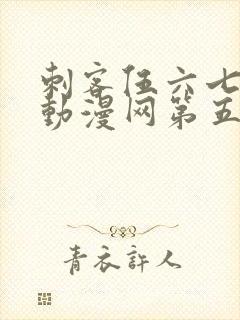 刺客伍六七
動漫网第五
青衣許人